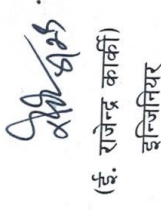 (ई. राजेन्द्र कार्की)
इन्जिनियर